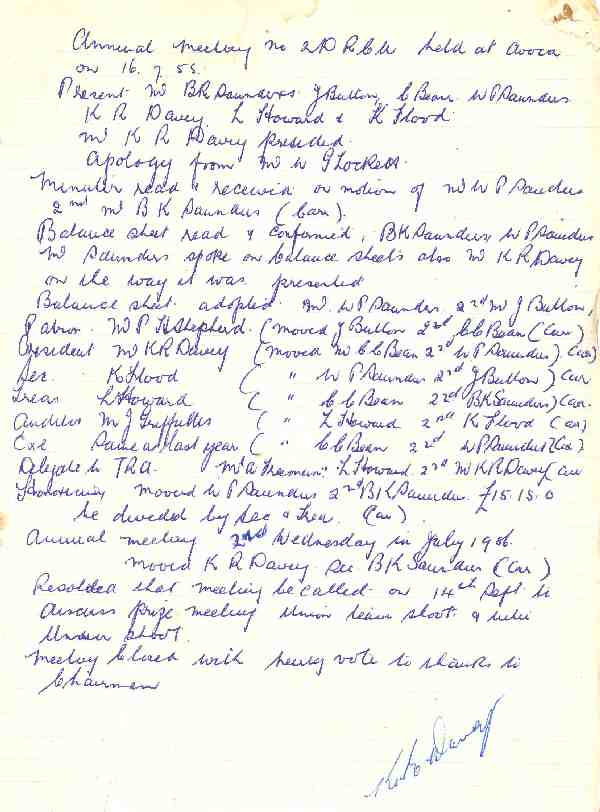 Annual meeting no 2 R C U held at Avoca
on 16.7.55.
Present Mr BK Saunders J Button, C Bean WP Saunders
K R Davey, L Howard & K Flood.
Mr K R Davey presided.
Apology from Mr W G Lockett.
Minutes read & received on motion of Mr W P Saunders
2nd Mr B K Saunders (Carr).
Balance sheet read & confirmed, BK Saunders W P Saunders
Mr Saunders spoke on balance sheets also Mr K R Davey
on the way it was presented
Balance sheet adopted. Mr W P Saunders, 2nd Mr J Button,
Patron. Mr P H Shepherd. (moved J Button 2nd C C Bean (Carr)
President Mr K R Davey (moved Mr C C Bean 2nd W P Saunders) Carr)
Sec. K Flood ( " W P Saunders 2nd J Button) Carr
Treas L Howard ( " C C Bean 2nd BK Saunders) (Carr.
Auditor Mr J Griffiths ( " L Howard 2nd K Flood (Carr)
Exe Same as last year ( " C C Bean 2nd W P Saunders) (Carr)
Delegate to TRA. Mr A Freeman. L Howard. 2nd Mr K R Davey (Carr
Honorarium moved W P Saunders 2nd BK Saunders. £15.15.0
be divided by Sec & Trea. (Carr)
Annual meeting 2nd Wednesday in July 1956.
moved K R Davey Sec BK Saunders (Carr)
Resolved that meeting be called on 14th Sept to
discuss prize meeting Union team shoot &
Union shoot.
Meeting closed with hearty vote to thanks to
Chairman
K R Davey